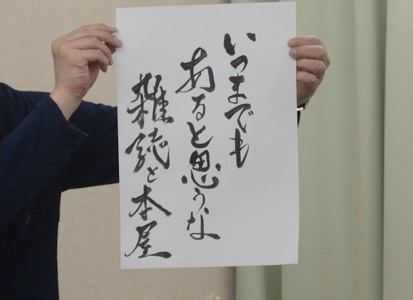 いつまでも
あると思うな
雑誌と本屋